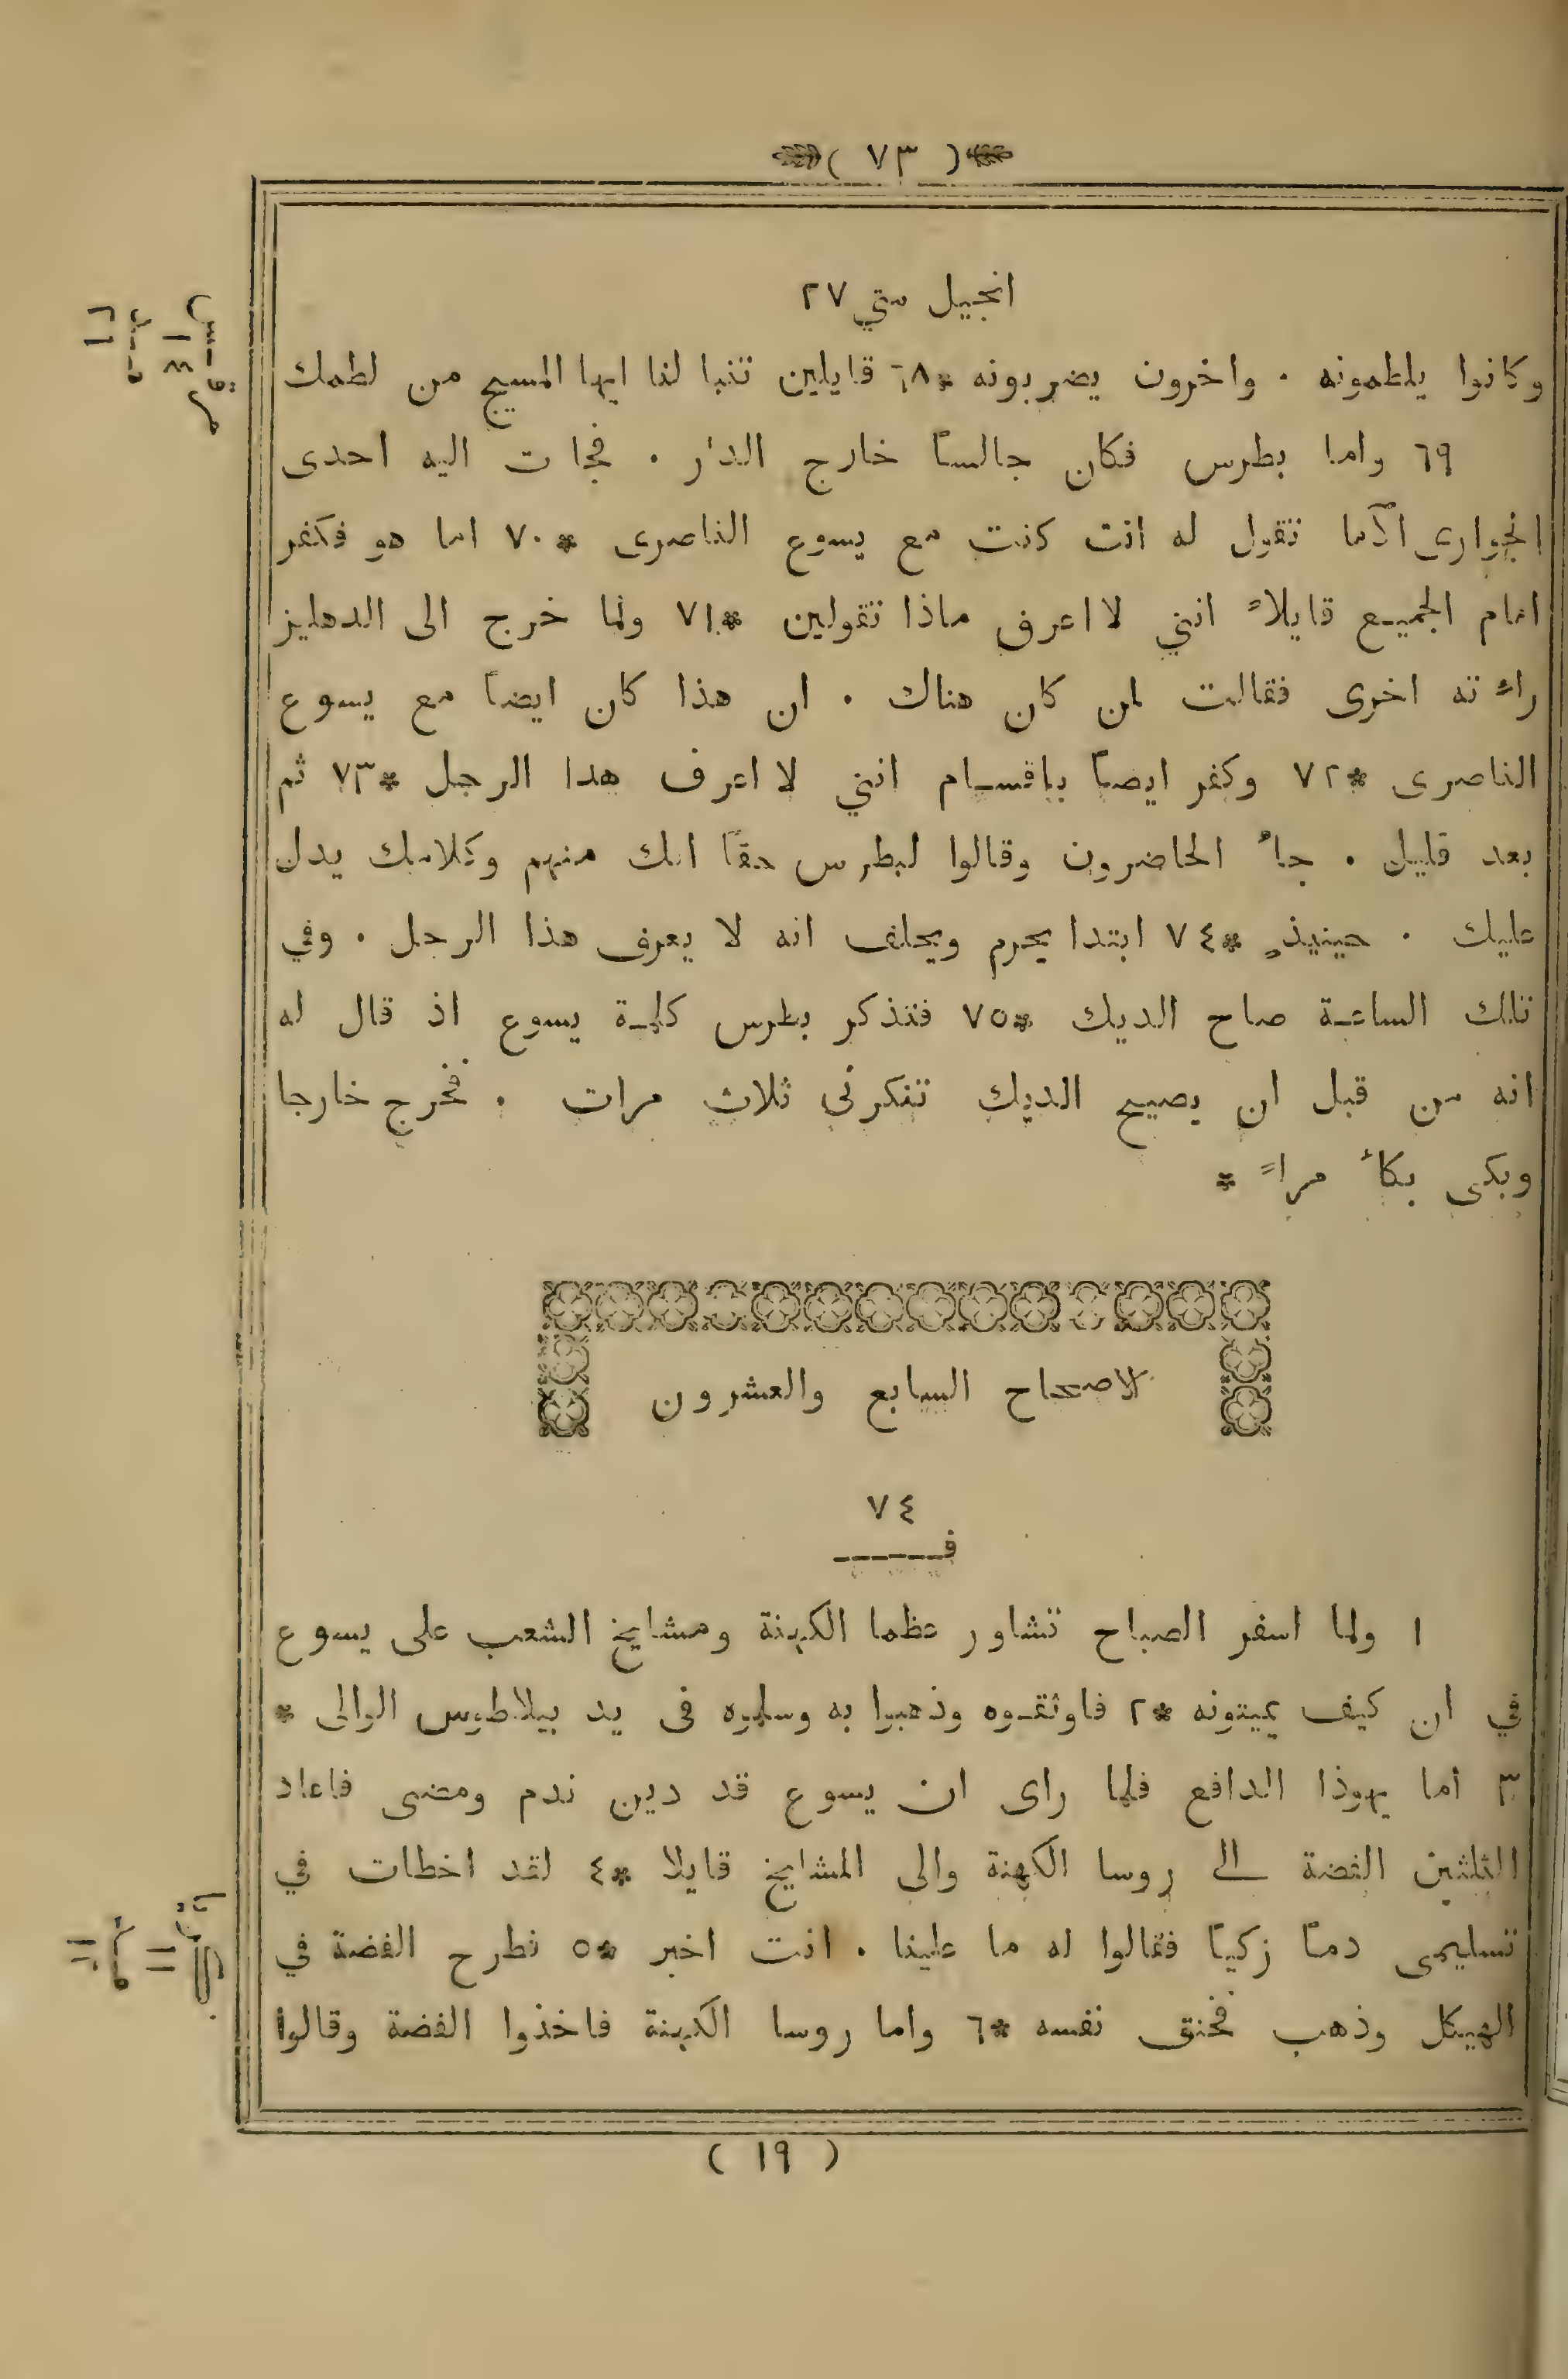 ( ٧٣ )
انجيل متي ٢٧
وكانوا يلطمونه . واخرون يضربونه *٦٨ قايلين تنبا لنا ايها المسيح من لطمك
٦٩ واما بطرس فكان جالساً خارج الدار . فجات اليه احدى
الجوارى الآما تقول له انت كنت مع يسوع الناصرى *٧٠ اما هو فكفر
امام الجميع قايلاً انني لا اعرف ماذا تقولين *٧١ ولما خرج الى الدهليز
راءته اخرى فقالت لمن كان هناك . ان هذا كان ايضاً مع يسوع
الناصرى *٧٢ وكفر ايضاً باقسام انني لا اعرف هذا الرجل *٧٣ ثم
بعد قليل . جاءُ الحاضرون وقالوا لبطرس حقاً انك منهم وكلامك يدل
عليك . حينيذٍ *٧٤ ابتدا يحرم ويحلف انه لا يعرف هذا الرجل . وفي
تلك الساعة صاح الديك *٧٥ فتذكر بطرس كلمة يسوع اذ قال له
انه من قبل ان يصيح الديك تنكرنى ثلاث مرات . فخرج خارجا
وبكى بكأ مراً *
الاصحاح السابع والعشرون
٧٤
ف
١ ولما اسفر الصباح تشاور عظما الكهنة ومشايخ الشعب على يسوع
في ان كيف يميتونه *٢ فاوثقوه وذهبوا به وسلموه فى يد بيلاطوس الوالى *
٣ اما يهوذا الدافع فلما راى ان يسوع قد دين ندم ومضى فاعاد
الثلثين الفضة الى روسا الكهنة والى المشايخ قايلا *٤ لقد اخطات في
تسليمى دماً زكياً فقالوا له ما علينا . انت اخبر *٥ فطرح الفضة في
الهيكل وذهب فخنق نفسه *٦ واما روسا الكهنة فاخذوا الفضة وقالوا
( ١٩ )